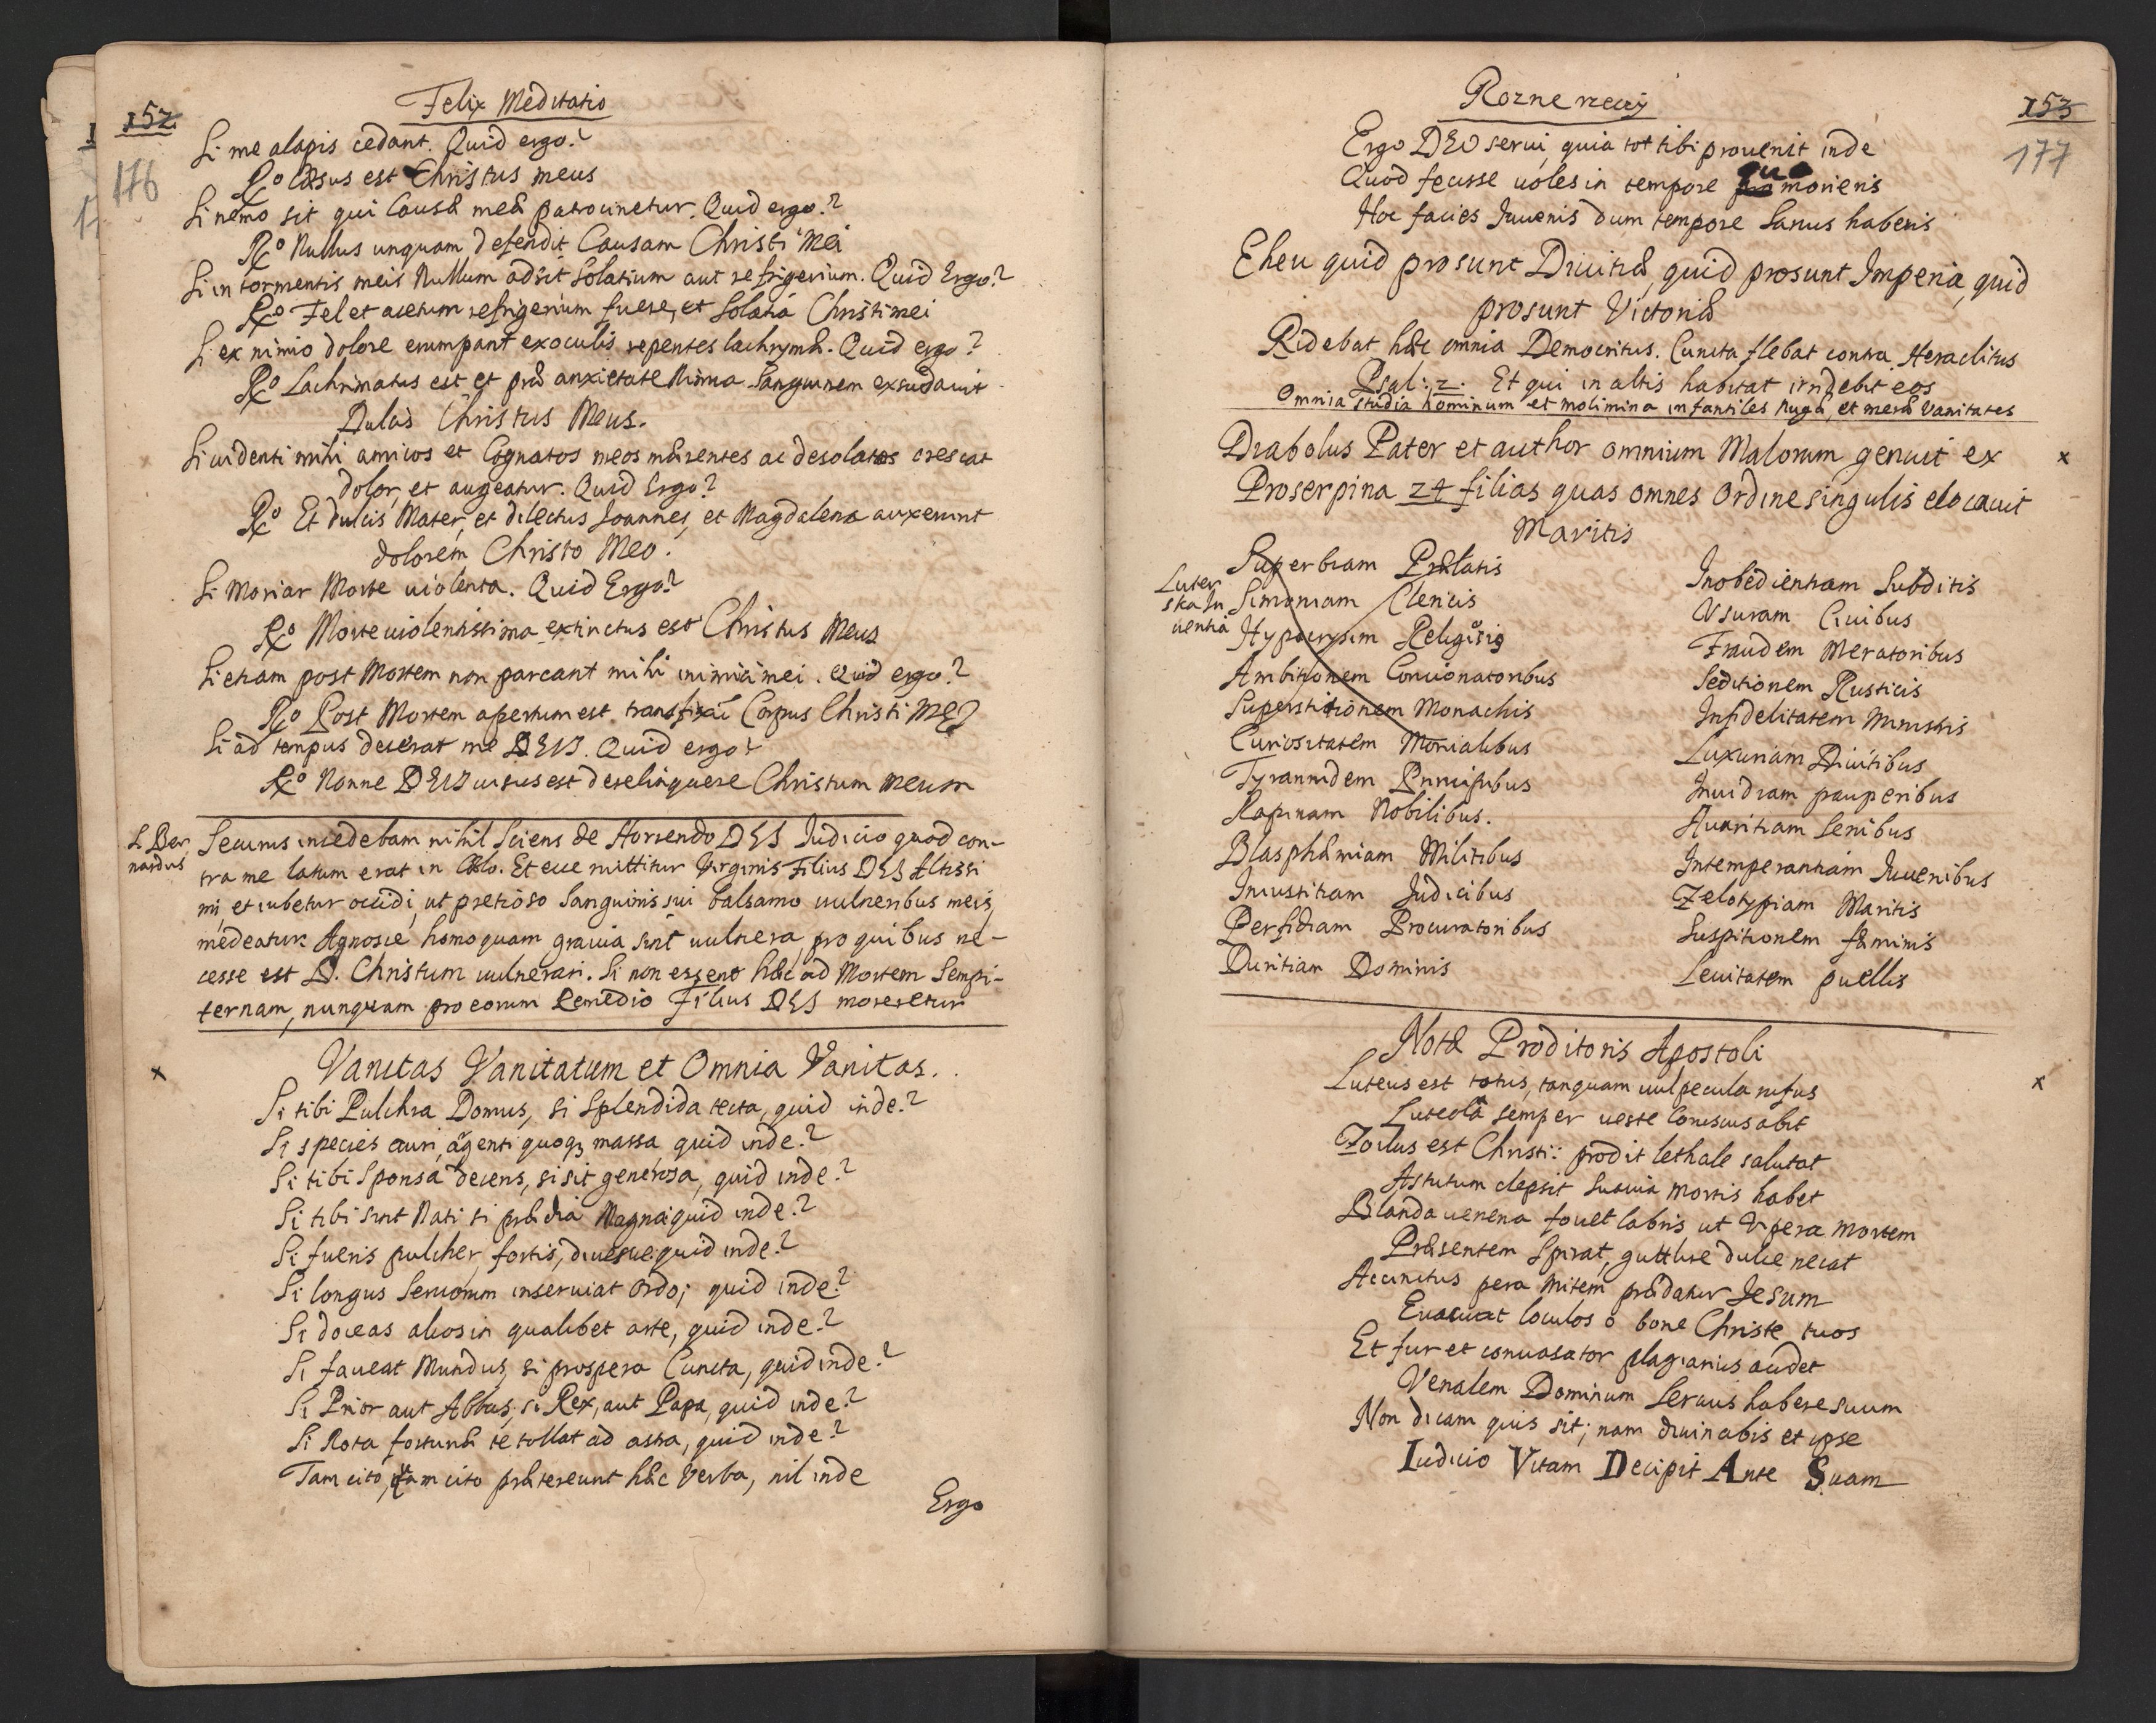 152.
176
Felix Meditatio
Si me alapis cedant. Quid ergo?
Rº Cæsus est Christus meus
Si nemo sit qui Causæ meæ patrocinetur. Quid ergo?
Rº Nullus unquam defendit Causam Christi Mei
Si in tormentis meis Nullum adsit Solatium aut refrigerium. Quid Ergo?
Rº Fel et acetum refrigerium fuere, et Solatia Christi mei
Si ex nimio dolore erumpant ex oculis repentes lachrymæ. Quid ergo?
Rº Lachrimatus est et præ anxietate Nimia Sanguinem exsudavit
Dulcis Christus Meus.
Si videnti mihi amicos et Cognatos meos mærentes ac desolatos crescat
dolor, et augeatur. Quid Ergo?
Rº Et dulcis Mater, et dilectus Joannes, et Magdalena auxerunt
dolorem Christo Meo.
Si Moriar Morte uiolenta. Quid Ergo?
Rº Morte uiolentissima extinctus est Christus Meus
Si etiam post Mortem non parcant mihi inimici mei. Quid ergo?
Rº Post Mortem apertum est Corpus Christi MEI
Si ad tempus deserat me DEUS. Quid ergo?
Rº Nonne DEUS uisus est derelinquere Christum Meum
S. Ber
nardus
Securus incedebam nihil Sciens de Horrendo DEI Iudicio quod con-
tra me latum erat in Cælo. Et ecce mittitur Virginis Filius DEI Altissi
mi, et iubetur occidi, ut pretioso Sanguinis sui balsamo uulneribus meis
medeatur. Agnosce homo quam grauia sint uulnera, pro quibus ne-
cesse est D. Christum uulnerari. Si non essent hæc ad Mortem Sempi-
ternam, nunquam pro eorum Remedio Filius DEI moreretur
x
Vanitas Vanitatum et Omnia Vanitas.
Si tibi Pulchra Domus, si Splendida tecta, quid inde?
Si species auri, argenti quoq₃ massa, quid inde?
Si tibi Sponsa decens, si sit generosa, quid inde?
Si tibi sint Nati si prædia Magna: quid inde?
Si fueris pulcher, fortis, diuesue: quid inde?
Si longus Seruorum inseruiat ordo; quid inde?
Si doceas alios in qualibet arte, quid inde?
Si faueat Mundus, si prospera Cuncta, quid inde?
Si Prior aut Abbas, si Rex, aut Papa, quid inde?
Si Rota fortunæ te tollat ad astra, quid inde?
Tam cito, tam cito prætereunt hæc Verba, nil inde
Ergo
Rozne rzeczÿ
153
177
Ergo DEO serui, quia tot tibi prouenit inde
Quod fecisse uoles in tempore quo morieris
Hoc facies Iuuenis dum tempore Sanus haberis
Eheu quid prosunt Diuitiæ, quid prosunt Imperia, quid
prosunt Victoriæ
Ridebat hæc omnia Democritus. Cuncta flebat contra Heraclitus
Psal: 2. Et qui in altis habitat irridebit eos
Omnia studia hominum et molimina infantiles Nugæ, et meræ Vanitates
Diabolus Pater et author omnium Malorum genuit ex
x
Proserpina 24 filias quas omnes Ordine singulis elocauit
Maritis
Luter
ska In
uentia
Superbiam Prælatis
Simoniam Clericis
Hypocrysim Religiosis
Ambitionem Concionatoribus
Superstitionem Monachis
Curiositatem Monialibus
Tyrannidem Principibus
Rapinam Nobilibus.
Blasphæmiam Militibus
Iniustitiam Judicibus
Perfidiam Procuratoribus
Duritiam Dominis
Inobedientiam Subditis
Vsuram Ciuibus
Fraudem Mercatoribus
Seditionem Rusticis
Infidelitatem Ministris
Luxuriam Diuitibus
Inuidiam pauperibus
Auaritiam Senibus
Intemperantiam Iuuenibus
Zelotypiam Maritis
Suspitionem fæminis
Leuitatem puellis
Notæ Proditoris Apostoli
x
Luteus est totus, tanquam uulpecula rufus
Luteola semper ueste Coruscus abit
Zoilus est Christi: prodit lethale salutat
Astutum clepsit Suauia mortis habet
Blanda uenena fouet labris ut Vipera mortem
Præsentem Spirat, gutture dulce necat
Accinctus pera Mitem prædatur JESUM
Euacuat loculos ô bone Christe tuos
Et fur et conuasator plagiarius audet
Venalem Dominum Seruus habere suum
Non dicam quis sit; nam diuinabis et ipse
Iudicio Vitam Decipit Ante Suam